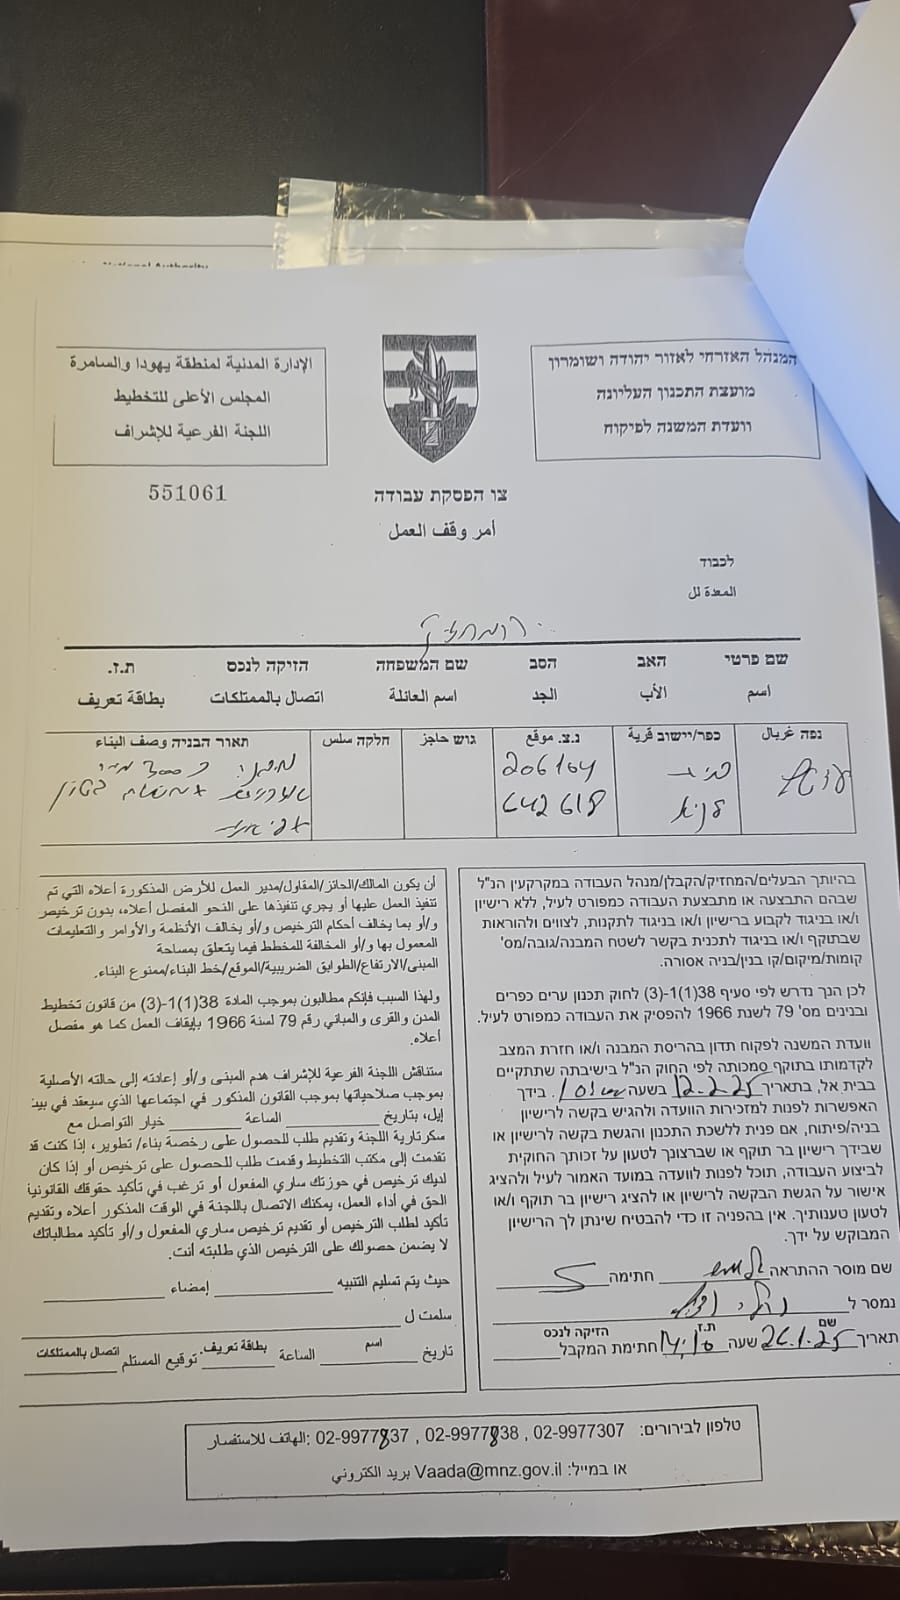 National Authority
המנהל האזרחי לאזור יהודה ושומרון
מועצת התכנון העליונה
וועדת המשנה לפיקוח
الإدارة المدنية لمنطقة يهودا والسامرة
المجلس الأعلى للتخطيط
اللجنة الفرعية للإشراف
551061
צו הפסקת עבודה
أمر وقف العمل
לכבוד
המعدة لل
המחזיק
שם פרטי האב הסב שם המשפחה הזיקה לנכס ת.ז.
اسم الأب الجد اسم العائلة اتصال بالممتلكات بطاقة تعريف
נפה غربال כפר/יישוב قرية נ.צ. موقع גוש حاجز חלקה سلس תאור הבניה وصف البناء
206104
642618
בהיותך הבעלים/המחזיק/הקבלן/מנהל העבודה במקרקעין הנ"ל
שבהם התבצעה או מתבצעת העבודה כמפורט לעיל, ללא רישיון
ו/או בניגוד לקבוע ברישיון ו/או בניגוד לתקנות, לצווים ולהוראות
שבתוקף ו/או בניגוד לתכנית בקשר לשטח המבנה/גובה/מס'
קומות/מיקום/קו בנין/בניה אסורה.
לכן הנך נדרש לפי סעיף 38(1)1-(3) לחוק תכנון ערים כפרים
ובנינים מס' 79 לשנת 1966 להפסיק את העבודה כמפורט לעיל.
וועדת המשנה לפקוח תדון בהריסת המבנה ו/או חזרת המצב
לקדמותו בתוקף סמכותה לפי החוק הנ"ל בישיבתה שתתקיים
בבית אל, בתאריך 12.2.25 בשעה . בידך
האפשרות לפנות למזכירות הוועדה ולהגיש בקשה לרישיון
בניה/פיתוח, אם פנית ללשכת התכנון והגשת בקשה לרישיון או
שבידך רישיון בר תוקף או שברצונך לטעון על זכותך החוקית
לביצוע העבודה, תוכל לפנות לוועדה במועד האמור לעיל ולהציג
אישור על הגשת הבקשה לרישיון או להציג רישיון בר תוקף ו/או
לטעון טענותיך. אין בהפניה זו כדי להבטיח שינתן לך הרישיון
המבוקש על ידך.
שם מוסר ההתראה חתימה
נמסר ל
שם ת.ז הזיקה לנכס
תאריך 26.1.25 שעה 14:10 חתימת המקבל
أن يكون المالك/الحائز/المقاول/مدير العمل للأرض المذكورة أعلاه التي تم
تنفيذ العمل عليها أو يجري تنفيذها على النحو المفصل أعلاه، بدون ترخيص
و/أو بما يخالف أحكام الترخيص و/أو يخالف الأنظمة والأوامر والتعليمات
المعمول بها و/أو المخالفة للمخطط فيما يتعلق بمساحة
المبنى/الارتفاع/الطوابق الضريبية/الموقع/خط البناء/ممنوع البناء.
ولهذا السبب فإنكم مطالبون بموجب المادة 38(1)1-(3) من قانون تخطيط
المدن والقرى والمباني رقم 79 لسنة 1966 بإيقاف العمل كما هو مفصل
أعلاه.
ستناقش اللجنة الفرعية للإشراف هدم المبنى و/أو إعادته إلى حالته الأصلية
بموجب صلاحياتها بموجب القانون المذكور في اجتماعها الذي سيعقد في بيت
إيل، بتاريخ الساعة خيار التواصل مع
سكرتارية اللجنة وتقديم طلب للحصول على رخصة بناء/ تطوير، إذا كنت قد
تقدمت إلى مكتب التخطيط وقدمت طلب للحصول على ترخيص أو إذا كان
لديك ترخيص في حوزتك ساري المفعول أو ترغب في تأكيد حقوقك القانونية
الحق في أداء العمل، يمكنك الاتصال باللجنة في الوقت المذكور أعلاه وتقديم
تأكيد لطلب الترخيص أو تقديم ترخيص ساري المفعول و/أو تأكيد مطالباتك
لا يضمن حصولك على الترخيص الذي طلبته أنت.
حيث يتم تسليم التنبيه إمضاء
سلمت ل
اسم بطاقة تعريف. اتصال بالممتلكات
تاريخ الساعة توقيع المستلم
טלפון לבירורים: 02-9977307 , 02-9977838 , 02-9977837 :الهاتف للاستفسار
או במייל: Vaada@mnz.gov.il بريد الكتروني